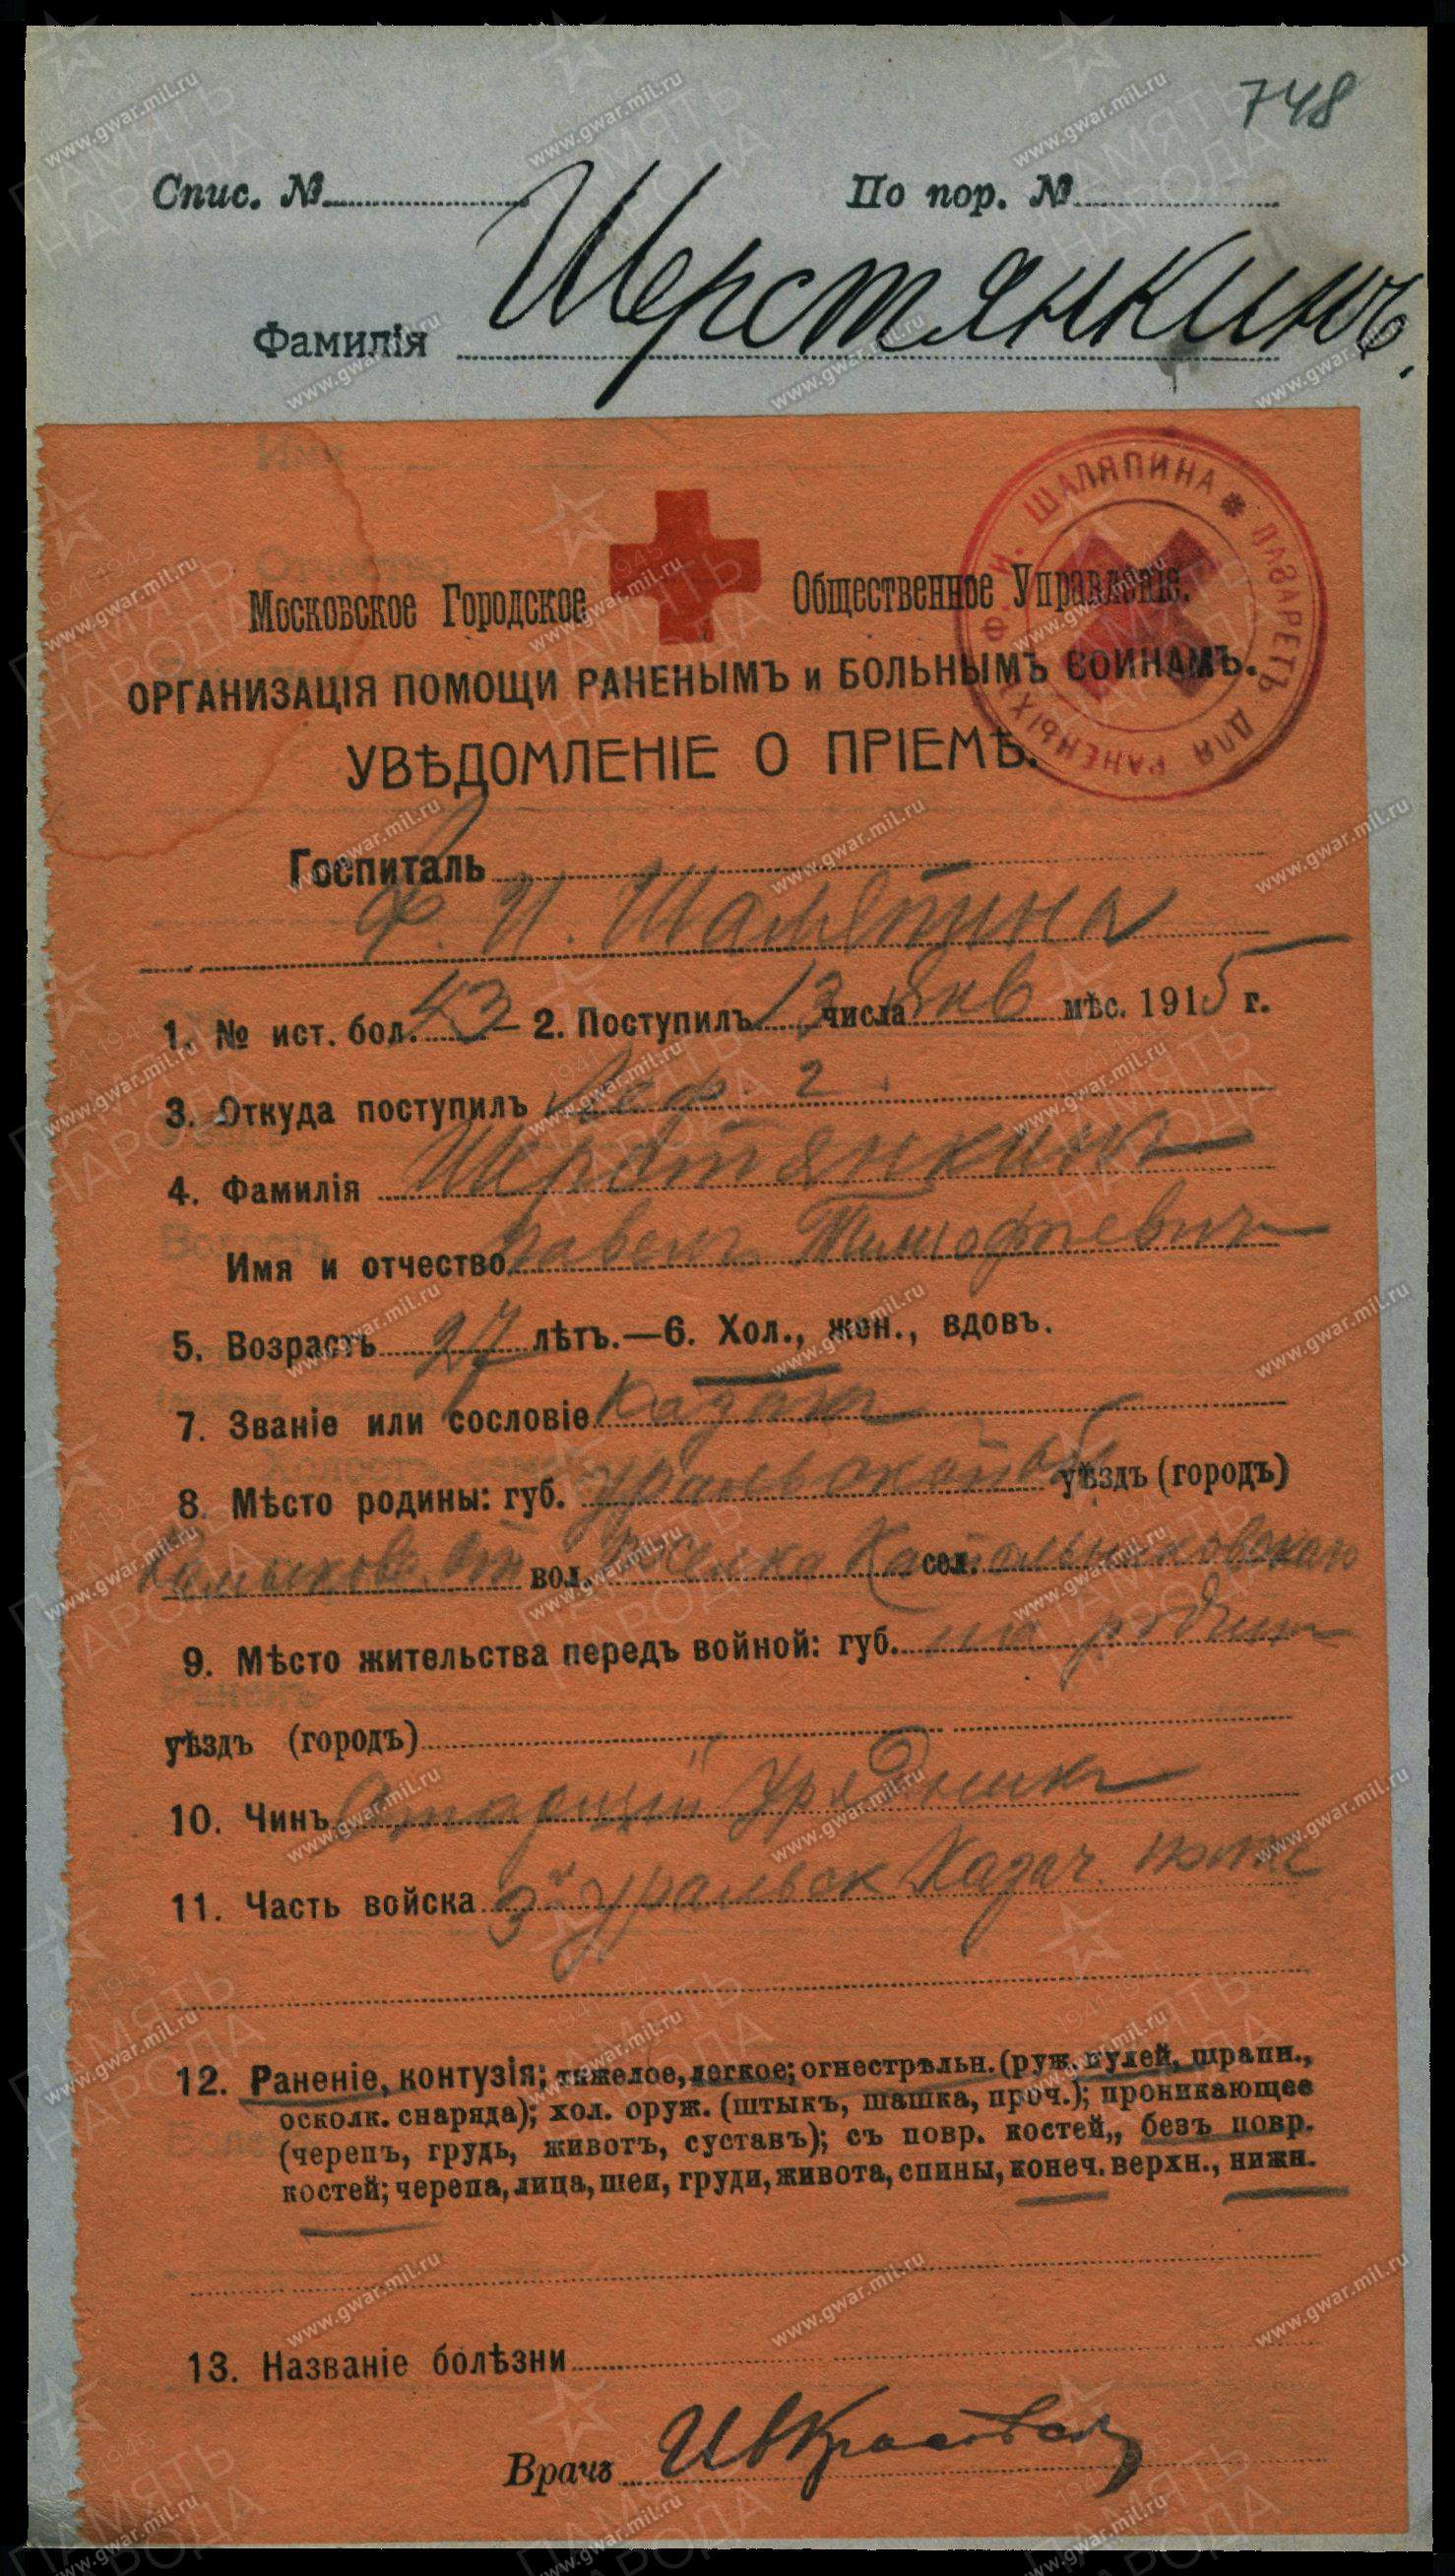 748
Спис. № По пор. №
Фамилія Шерстянкинъ.
Ф. И. ШАЛЯПИНА * ЛАЗАРЕТЪ ДЛЯ РАНЕНЫХЪ
Московское Городское Общественное Управленіе.
ОРГАНИЗАЦІЯ ПОМОЩИ РАНЕНЫМЪ и БОЛЬНЫМЪ ВОИНАМЪ.
УВѢДОМЛЕНІЕ О ПРІЕМѢ.
Госпиталь
Ф. И. Шаляпина
1. № ист. бол. 43 — 2. Поступилъ 13 числа Янв мѣс. 1915 г.
3. Откуда поступилъ 2
4. Фамилія Шерстянкинъ
Имя и отчество Павелъ Тимофѣевичъ
5. Возрастъ 27 лѣтъ.—6. Хол., жен., вдовъ.
7. Званіе или сословіе Казакъ
8. Мѣсто родины: губ. Уральской об уѣздъ (городъ)
вол. поселка сел.
9. Мѣсто жительства передъ войной: губ. на родинѣ
уѣздъ (городъ)
10. Чинъ Старшій Урядникъ
11. Часть войска 3й Уральск Казач. полкъ
12. Раненіе, контузія; тяжелое, легкое; огнестрѣльн. (руж. пулей, шрапн.,
осколк. снаряда); хол. оруж. (штыкъ, шашка, проч.); проникающее
(черепъ, грудь, животъ, суставъ); съ повр. костей,, безъ повр.
костей; черепа, лица, шеи, груди, живота, спины, конеч. верхн., нижн.
13. Названіе болѣзни
Врачъ